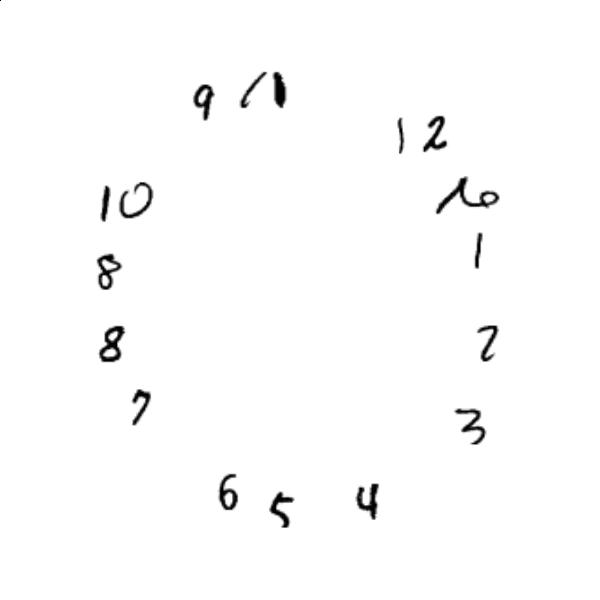 9 11
12
10 10
8 1
8 2
7 3
6 5 4